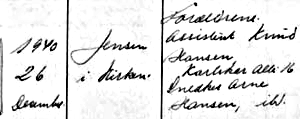 Forældrene.
1940 Jensen Assistent Knud
Hansen,
26 i Kirken. Karlslker Allé 16
Snedker Arne
December Hansen, ibd.